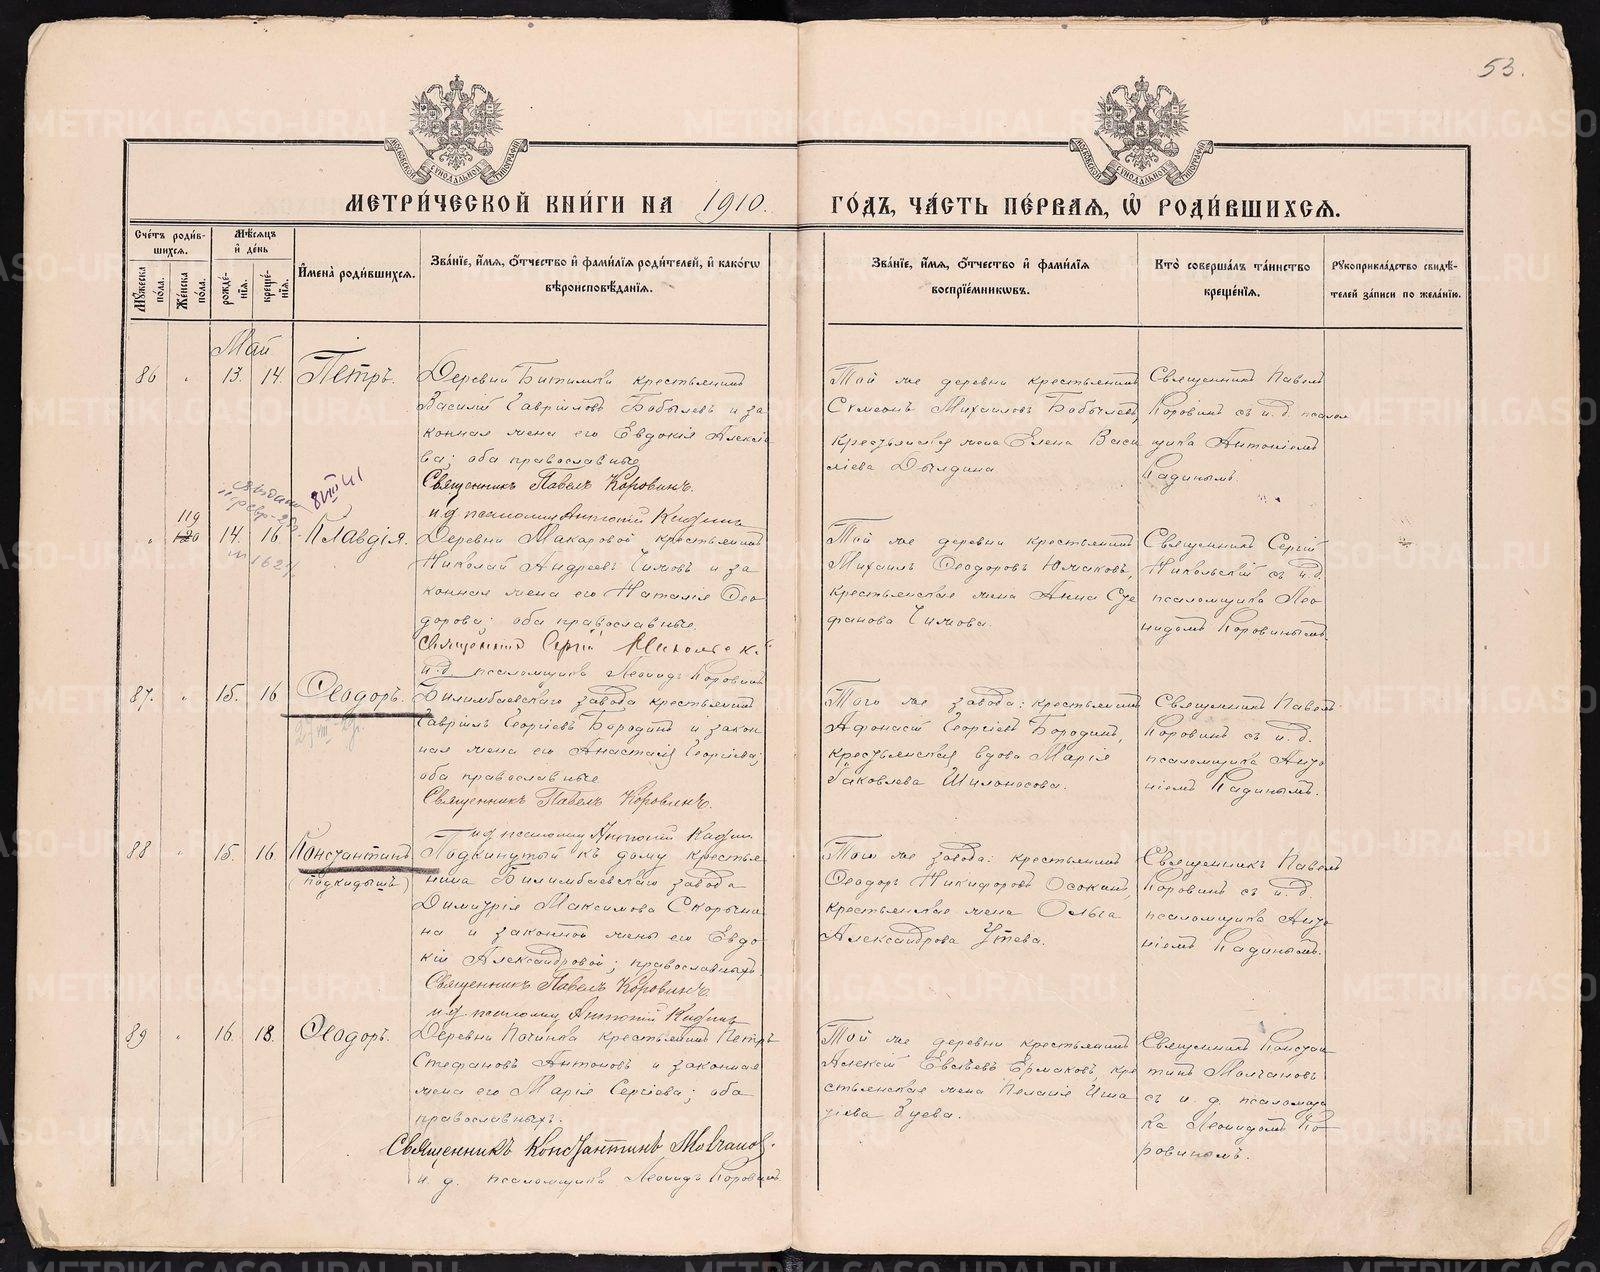 53.
МЕТРИ́ЧЕСКОЙ КНИ́ГИ НА 1910. ГО́ДЪ, ЧА́СТЬ ПЕ́РВАЯ, Ѡ҆ РОДИ́ВШИХСЯ.
Счетъ роди́вшихся.
Мꙋжеска по́ла.
Же́нска по́ла.
Мѣ́сяцъ и҆ де́нь
рожде́нїѧ.
креще́нїѧ.
И҆мена̀ роди́вшихсѧ.
Зва́нїе, и҆́мѧ, ѻ҆́тчество и҆ фами́лїѧ роди́телей, и҆ како́гѡ
вѣроисповѣ́данїѧ.
Зва́нїе, и҆́мѧ, ѻ҆́тчество и҆ фами́лїѧ
воспрїе́мникѡвъ.
Кто̀ соверша́лъ та́инство
креще́нїѧ.
Рꙋкоприкла́дство свидѣ́-
телей за́писи по жела́нїю.
Май
86 " 13. 14. Петръ.
Деревни Битимки крестьянинъ
Василій Гавріиловъ Бобылевъ и за
конная жена его Евдокія Алексѣе
ва; оба православные
Священникъ Павелъ Коровинъ.
и.д. псаломщ. Антоній Кадинъ
Той же деревни крестьянинъ
Симеонъ Михаиловъ Бобылевъ,
крестьянская жена Елена Васи
ліева Дылдина
Священникъ Павелъ
Коровинъ съ и. д. псалом
щика Антоніемъ
Кадинымъ.
8/VIII 41
" 119 120 14. 16. Клавдія.
Деревни Макаровой крестьянинъ
Николай Андреевъ Чижовъ и за
конная жена его Наталія Ѳео
дорова; оба православные.
Священникъ Сергій Никольскій
и.д. псаломщика Леонидъ Коровинъ
Той же деревни крестьянинъ
Михаилъ Ѳеодоровъ Южаковъ,
крестьянская жена Анна Сте
фанова Чижова.
Священникъ Сергій
Никольскій съ и.д.
псаломщика Лео
нидомъ Коровинымъ
87. " 15. 16 Ѳеодоръ.
Билимбаевскаго завода крестьянинъ
Гавріилъ Георгіевъ Бородинъ и закон
ная жена его Анастасія Георгіева;
оба православные
Священникъ Павелъ Коровинъ.
и.д. псаломщ. Антоній Кадинъ
Того же завода: крестьянинъ
Афонасій Георгіевъ Бородинъ,
крестьянская вдова Марія
Яковлева Шилоносова.
Священникъ Павелъ
Коровинъ съ и. д.
псаломщика Анто
ніемъ Кадинымъ.
88 " 15. 16. Константинъ
(подкидышъ)
Подкинутый къ дому крестья
нина Билимбаевскаго завода
Димитрія Максимова Скорыни
на и законной жены его Евдо
кіи Александровой; православныхъ.
Священникъ Павелъ Коровинъ.
и.д. псаломщ. Антоній Кадинъ
Того же завода: крестьянинъ
Ѳеодоръ Никифоровъ Осокинъ,
крестьянская жена Ольга
Александрова Утева.
Священникъ Павелъ
Коровинъ съ и.д.
псаломщика Анто
ніемъ Кадинымъ.
89 " 16. 18. Ѳеодоръ.
Деревни Починка крестьянинъ Петръ
Стефановъ Антоновъ и законная
жена его Марія Сергіева; оба
православныхъ.
Священникъ Константинъ Молчановъ.
и. д. псаломщика Леонидъ Коровинъ
Той же деревни крестьянинъ
Алексій Евсѣевъ Ермаковъ, кре
стьянская жена Пелагія Игна
тіева Зуева.
Священникъ Констан
тинъ Молчановъ
съ и. д. псаломщи
ка Леонидомъ Ко
ровинымъ.
METRIKI.GASO-URAL.RU